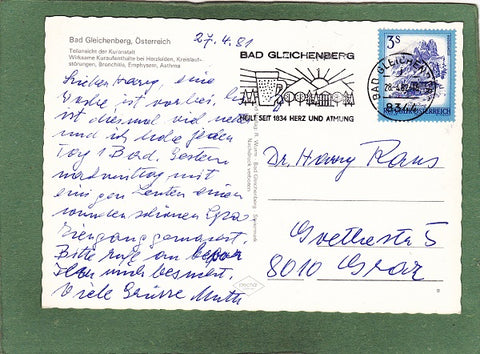 Bad Gleichenberg, Österreich
Teilansicht der Kuranstalt
Wirksame Kuraufenthalte bei Herzleiden, Kreislauf-
störungen, Bronchitis, Emphysem, Asthma
27.4.81
Lieber Harry, eine
Woche ist vorbei,
ist diesmal viel
und ich habe jeden
Tag 1 Bad. Gestern
nachmittag mit
einigen Leuten einen
wunderschönen
ziergang gemacht.
Bitte rufe an bevor
Du mich besuchst.
Viele Grüsse Mutti
BAD GLEICHENBERG
HEILT SEIT 1834 HERZ UND ATMUNG
3S
BAD GLEICHENBERG
8344
REPUBLIK ÖSTERREICH
Dr. Harry Kraus
Goethestr 5
8010 Graz